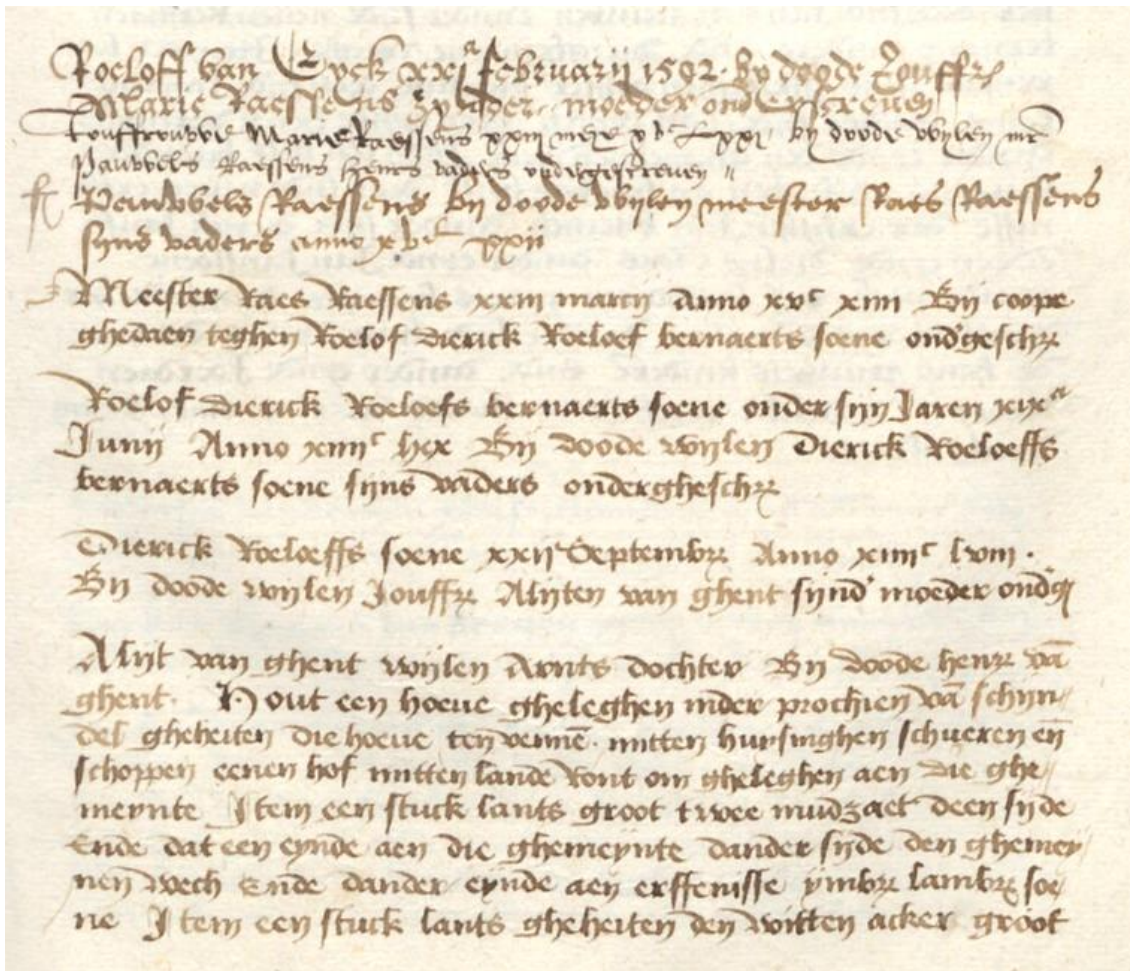 Roeloff van Eyck xxi februarij 1592. by doode Jouffr
Marie Raessens zynder moeder onderscreven
Jouffrouwe Marie Raessens xxiii meye xvc Lxxi bij doode wijlen mr
Pauwels Raessens heurs vaders vndergescreven
Pauwels Raessens bij doode wijlen meester Raes Raessens
sijns vaders anno xvc xxii
Meester Raes Raessens xxiii marcij Anno xvc xiiii Bij coope
ghedaen teghen Roelof Dierick Roeloef bernaerts soene ondgeschr
Roelof Dierick Roeloefs bernaerts soene onder sijn Jaren xixa
Junij Anno xiiiic lxx Bij doode wijlen Dierick Roeloeffs
bernaerts soene sijns vaders ondergheschr
Dierick Roeloeffs soene xxija Septembr Anno xiiiic lviii.
Bij doode wijlen Jouffr Alijten van ghent sijnd moeder ondg
Alijt van ghent wijlen Arnts dochter Bij doode henr vā
ghent. Hout een hoeue gheleghen inder prochien vā schijn
del gheheiten die hoeue ten vennē. mitten huysinghen schueren eñ
schoppen eenen hof mitten lande Ront om gheleghen aen die ghe
meynte Item een stuck lants groot twee mudzaet deen sijde
Ende dat een eynde aen die ghemeynte dander sijde den ghemey
nen wech Ende dander eynde aen erffenisse ymbr lambr soe
ne Item een stuck lants gheheiten den witten acker groot